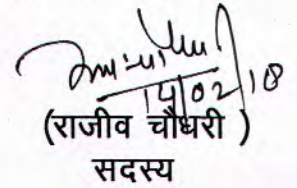 14/02/18
(राजीव चौधरी )
सदस्य